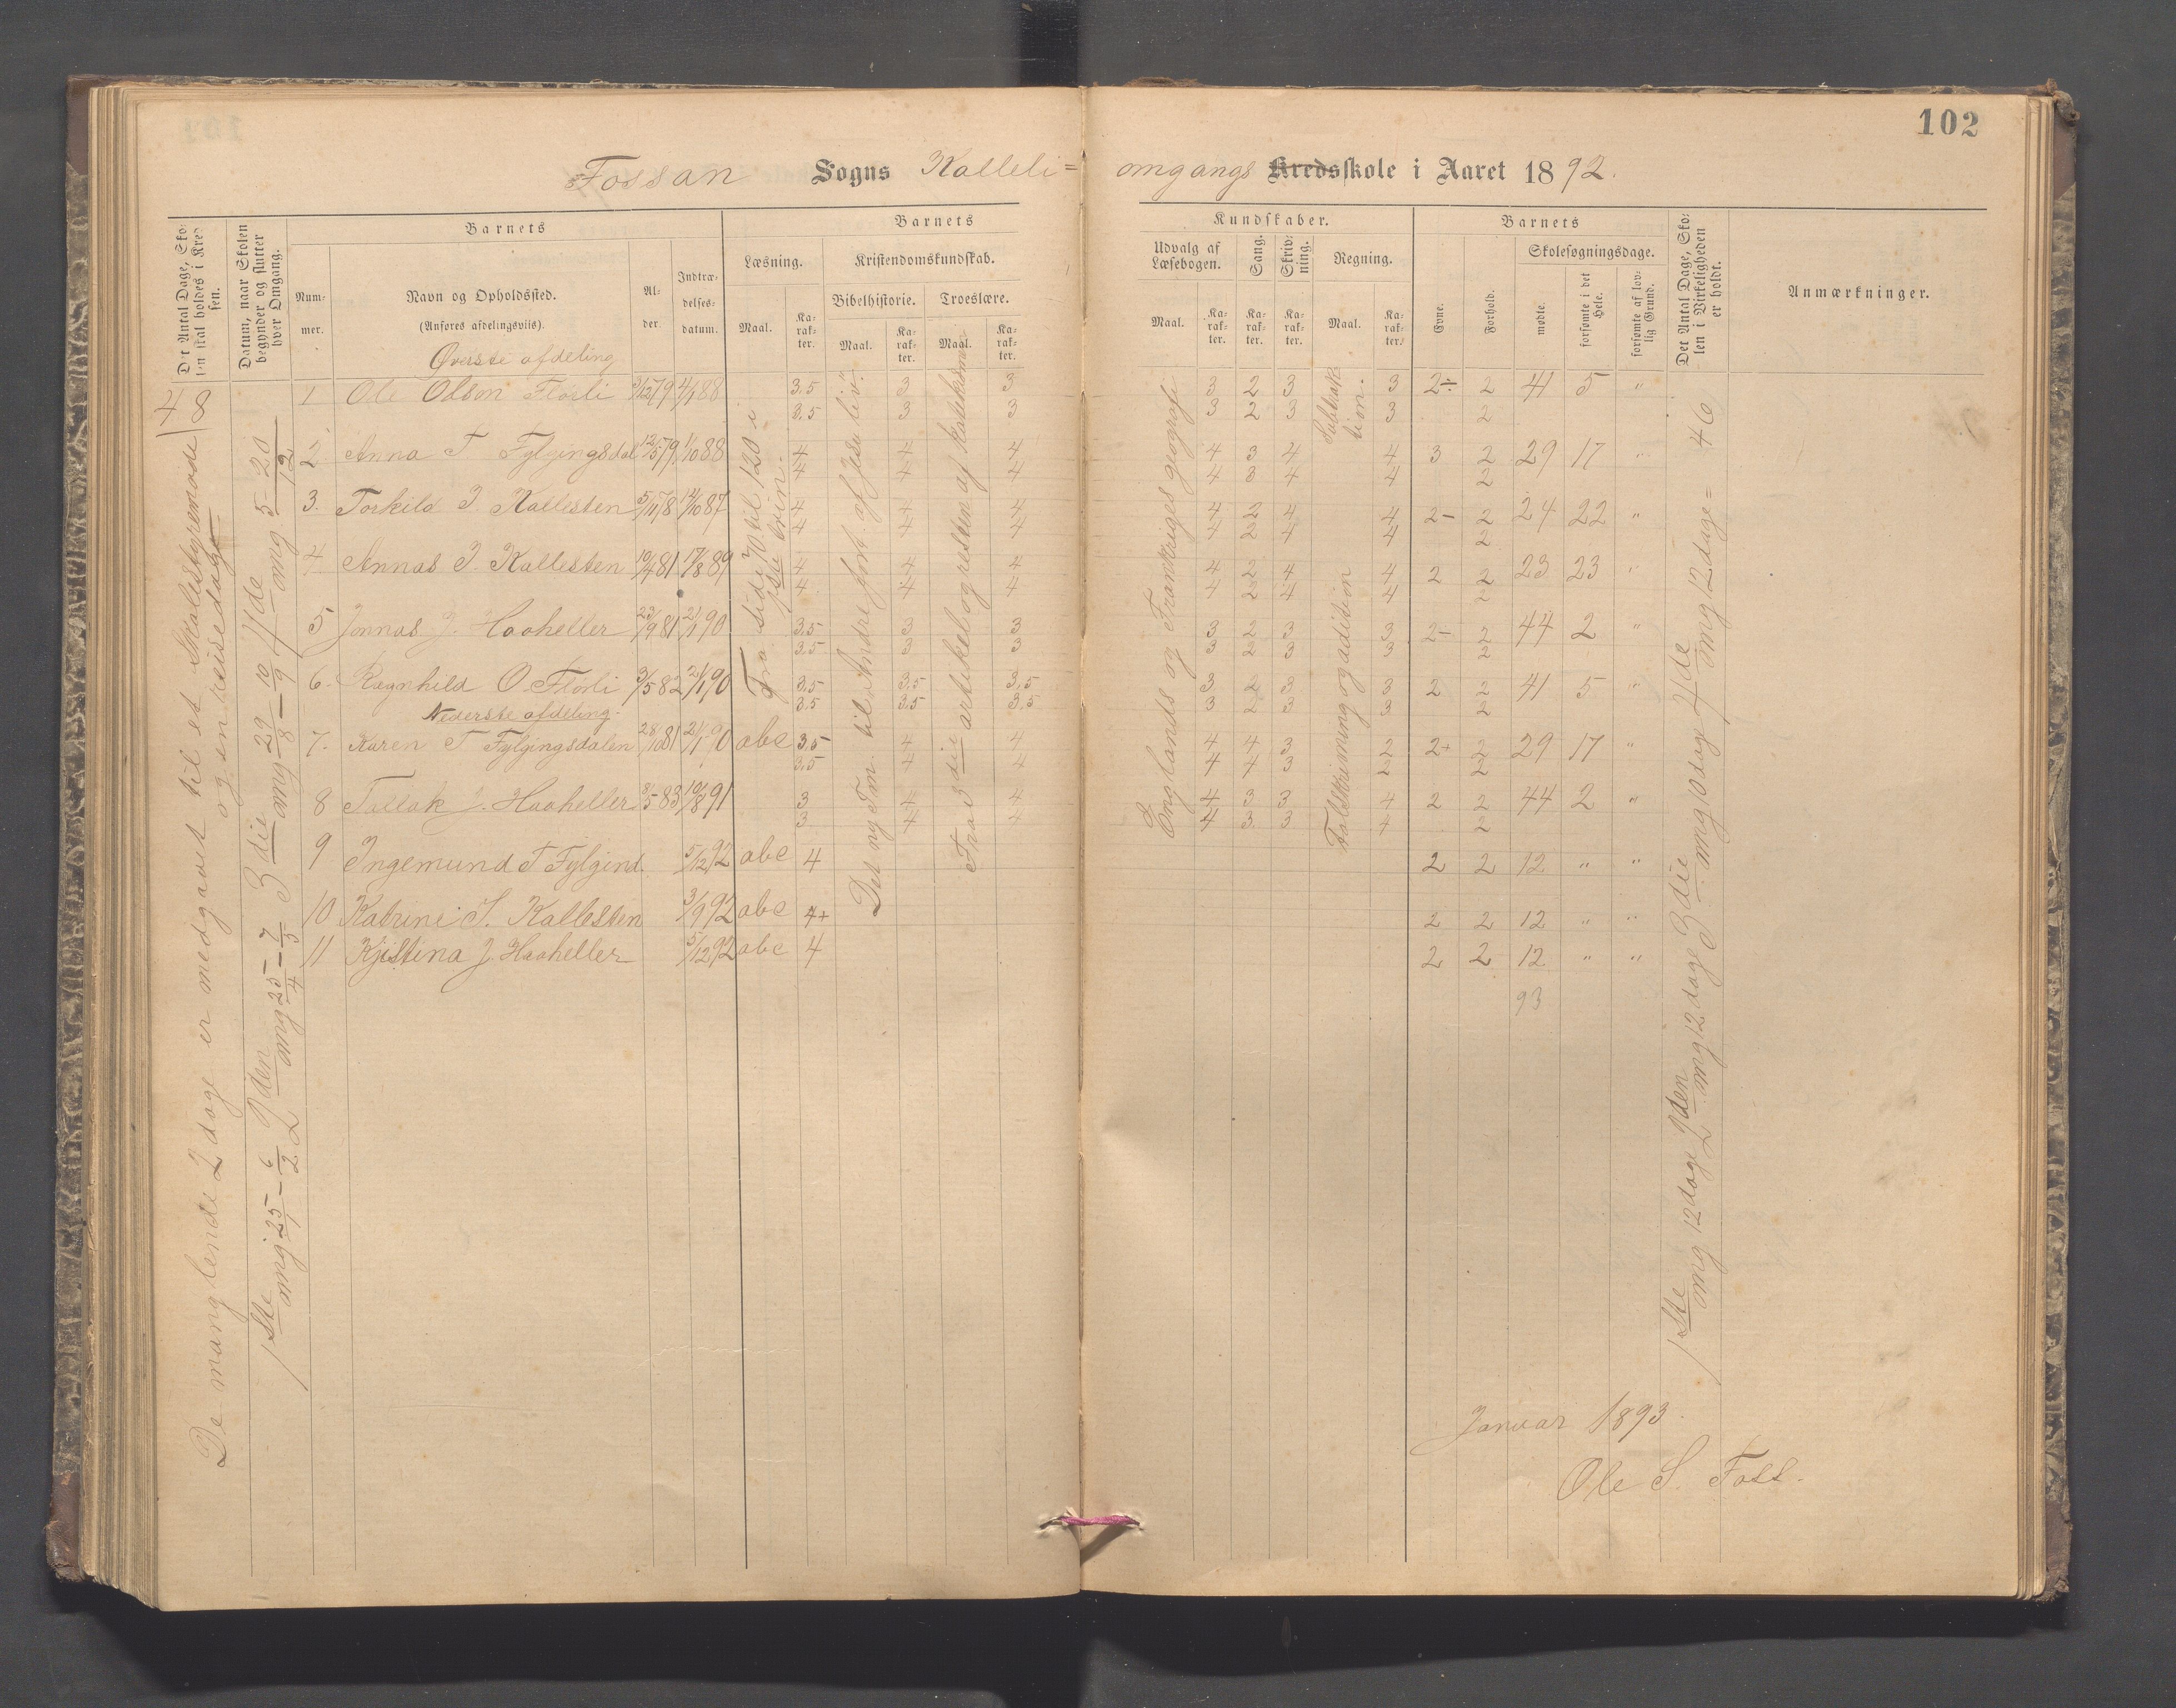 102
Fossan Sogns Kalleli= omgangs Kredsskole i Aaret 1892.
Det Antal Dage, Skolen skal holdes i Kredsen.
Datum, naar Skolen begynder og slutter hver Omgang.
Barnets
Nummer.
Navn og Opholdssted.
(Anføres afdelingsviis).
Alder.
Indtrædelsesdatum.
Barnets
Læsning.
Maal.
Karakter.
Kristendomskundskab.
Bibelhistorie.
Maal.
Karakter.
Troeslære.
Maal.
Karakter.
Kundskaber.
Udvalg af Læsebogen.
Maal.
Karakter.
Sang.
Karakter.
Skrivning.
Karakter.
Regning.
Maal.
Karakter.
Barnets
Evne.
Forhold.
Skolesøgningsdage.
mødte.
forsømte i det Hele.
forsømte af lovlig Grund.
Det Antal Dage, Skolen i Virkeligheden er holdt.
Anmærkninger.
48
De manglende 2 dage er medgaaet til et Skolestyremøde og en reisedage
1ste omg 25/1 - 6/2. 2den omg 25/4 - 7/5 3die omg 29/8 - 10/9 4de omg. 5 - 20/12
Øverste afdeling
1 Ole Olson Flörli 3/12 79 4/1 88 3.5 3 3 3 2 3 3 2÷ 2 41 5 "
3.5 3 3 3 2 3 3 2
2. Anna T Fylgingsdal 12/5 79 1/10 88 4 4 4 4 3 4 4 3 2 29 17 "
4 4 4 4 3 4 4 2
3. Torkild J. Kallesten 5/11 78 12/10 87 4 4 4 4 2 4 4 2- 2 24 22 "
4 4 4 4 2 4 4 2
4 Annas J. Kallesten 10/4 81 17/8 89 4 4 4 4 2 4 4 2 2 23 23 "
4 4 4 4 2 4 4 2
5. Jonnas J. Haaheller 23/9 81 21/1 90 3.5 3 3 3 2 3 3 2- 2 44 2 "
3.5 3 3 3 2 3 3 2
6. Ragnhild O. Flörli 3/5 82 21/1 90 3.5 3.5 3.5 3 2 3 3 2 2 41 5 "
3.5 3.5 3.5 3 2 3 3 2
Nederste afdeling.
7. Karen T Fylgingsdalen 28/10 81 21/1 90 abc 3.5 4 4 4 4 3 2 2+ 2 29 17 "
3.5 4 4 4 4 3 2 2
8 Tallak J. Haaheller 8/5 83 10/8 91 3 4 4 4 3 3 4 2 2 44 2 "
3 4 4 4 3 3 4 2
9 Ingemund T Fylgind. 5/12 92 abc 4 2 2 12 " "
10 Katrine S. Kallesten 3/9 92 abc 4+ 2 2 12 " "
11 Kjistina J. Haaheller 5/12 92 abc 4 2 2 12 " "
93
Fra side 70 til 120 i
Det nye Tm. til Andre fort. af Jesu liv.
Fra 3die artikel og resten af
Englands og Frankriges geografi
Talskrivning og adition
Subtraktion.
1ste omg 12 dage 2den omg 12 dage 3die omg 10 dag 4de omg 12 dage = 46
Januar 1893.
Ole S. Foss.